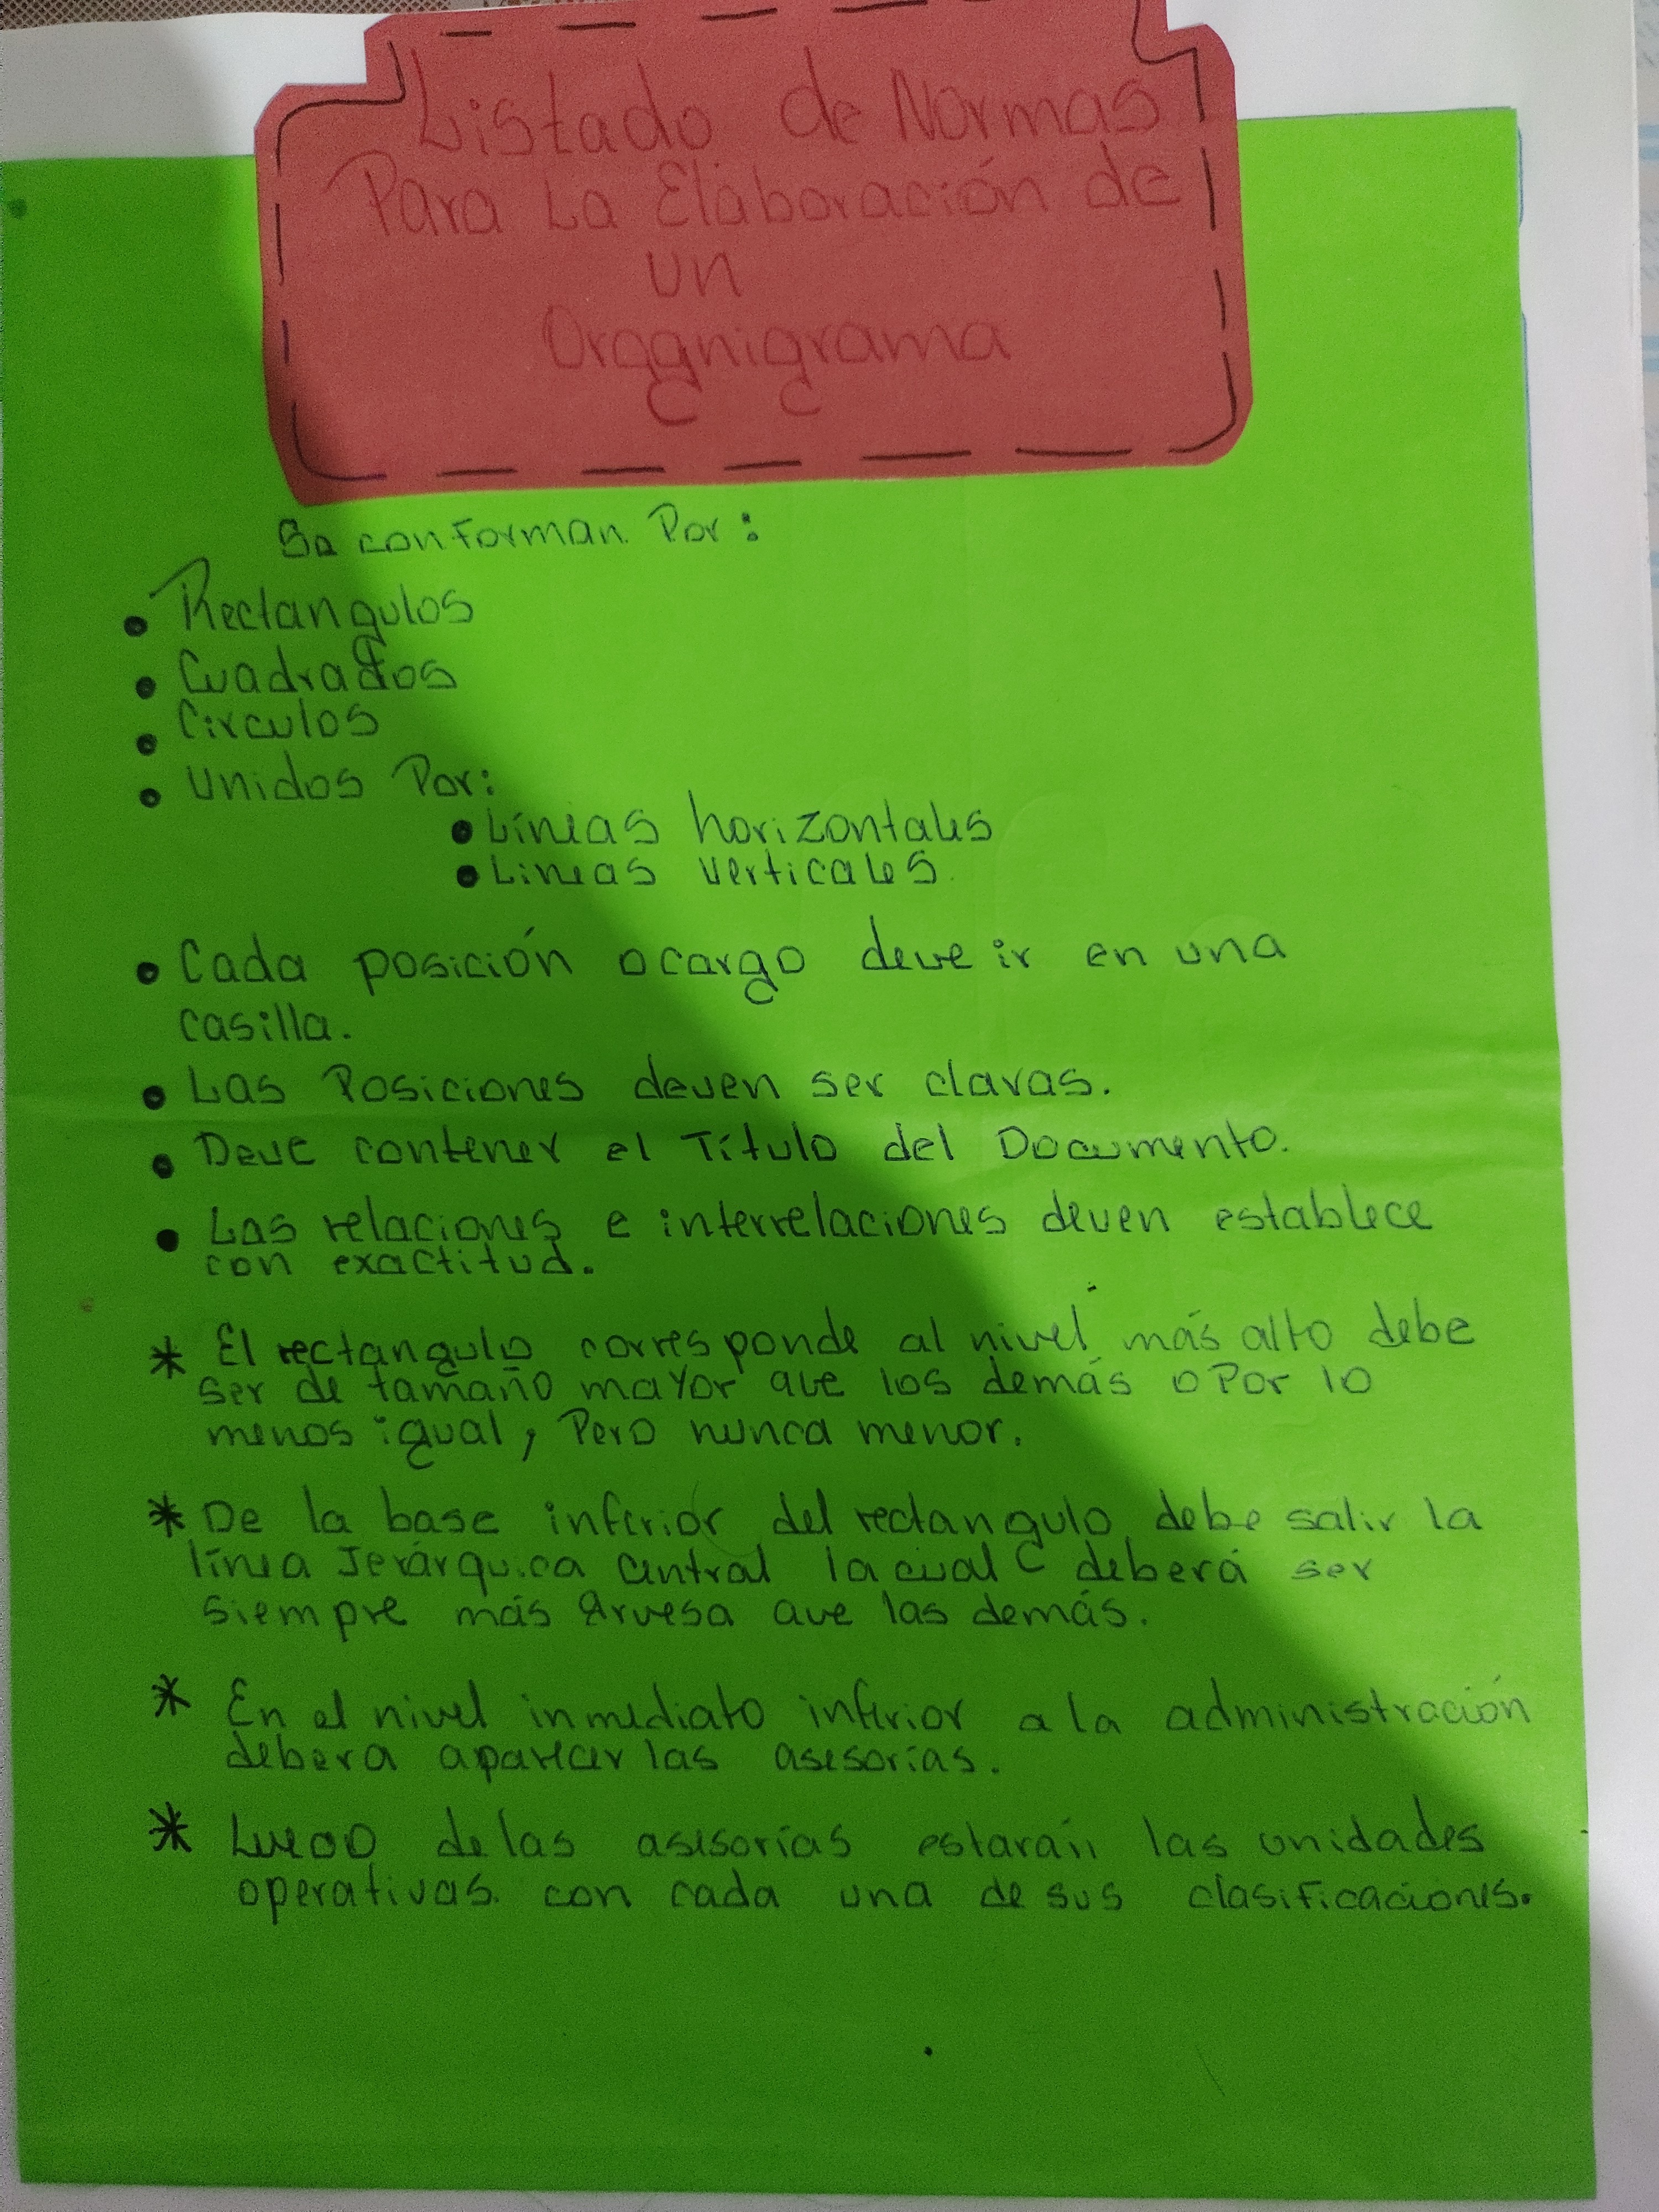 Listado de Normas
Para La Elaboración de
un
Organigrama
Se conforman Por:
• Rectangulos
• Cuadrados
• Circulos
• Unidos Por:
• Líneas horizontales
• Lineas verticales.
• Cada posición o cargo deve ir en una
casilla.
• Las Posiciones deven ser claras.
• Deve contener el Título del Documento.
• Las relaciones e interrelaciones deven establece
con exactitud.
* El rectangulo corresponde al nivel más alto debe
ser de tamaño mayor que los demás o Por lo
menos igual, Pero nunca menor.
* De la base inferior del rectangulo debe salir la
línea Jerárquica central la cual deberá ser
siempre más gruesa que las demás.
* En el nivel inmediato inferior a la administración
debera aparecer las asesorías.
* Luego de las asesorías estarán las unidades
operativas. con cada una de sus clasificaciones.